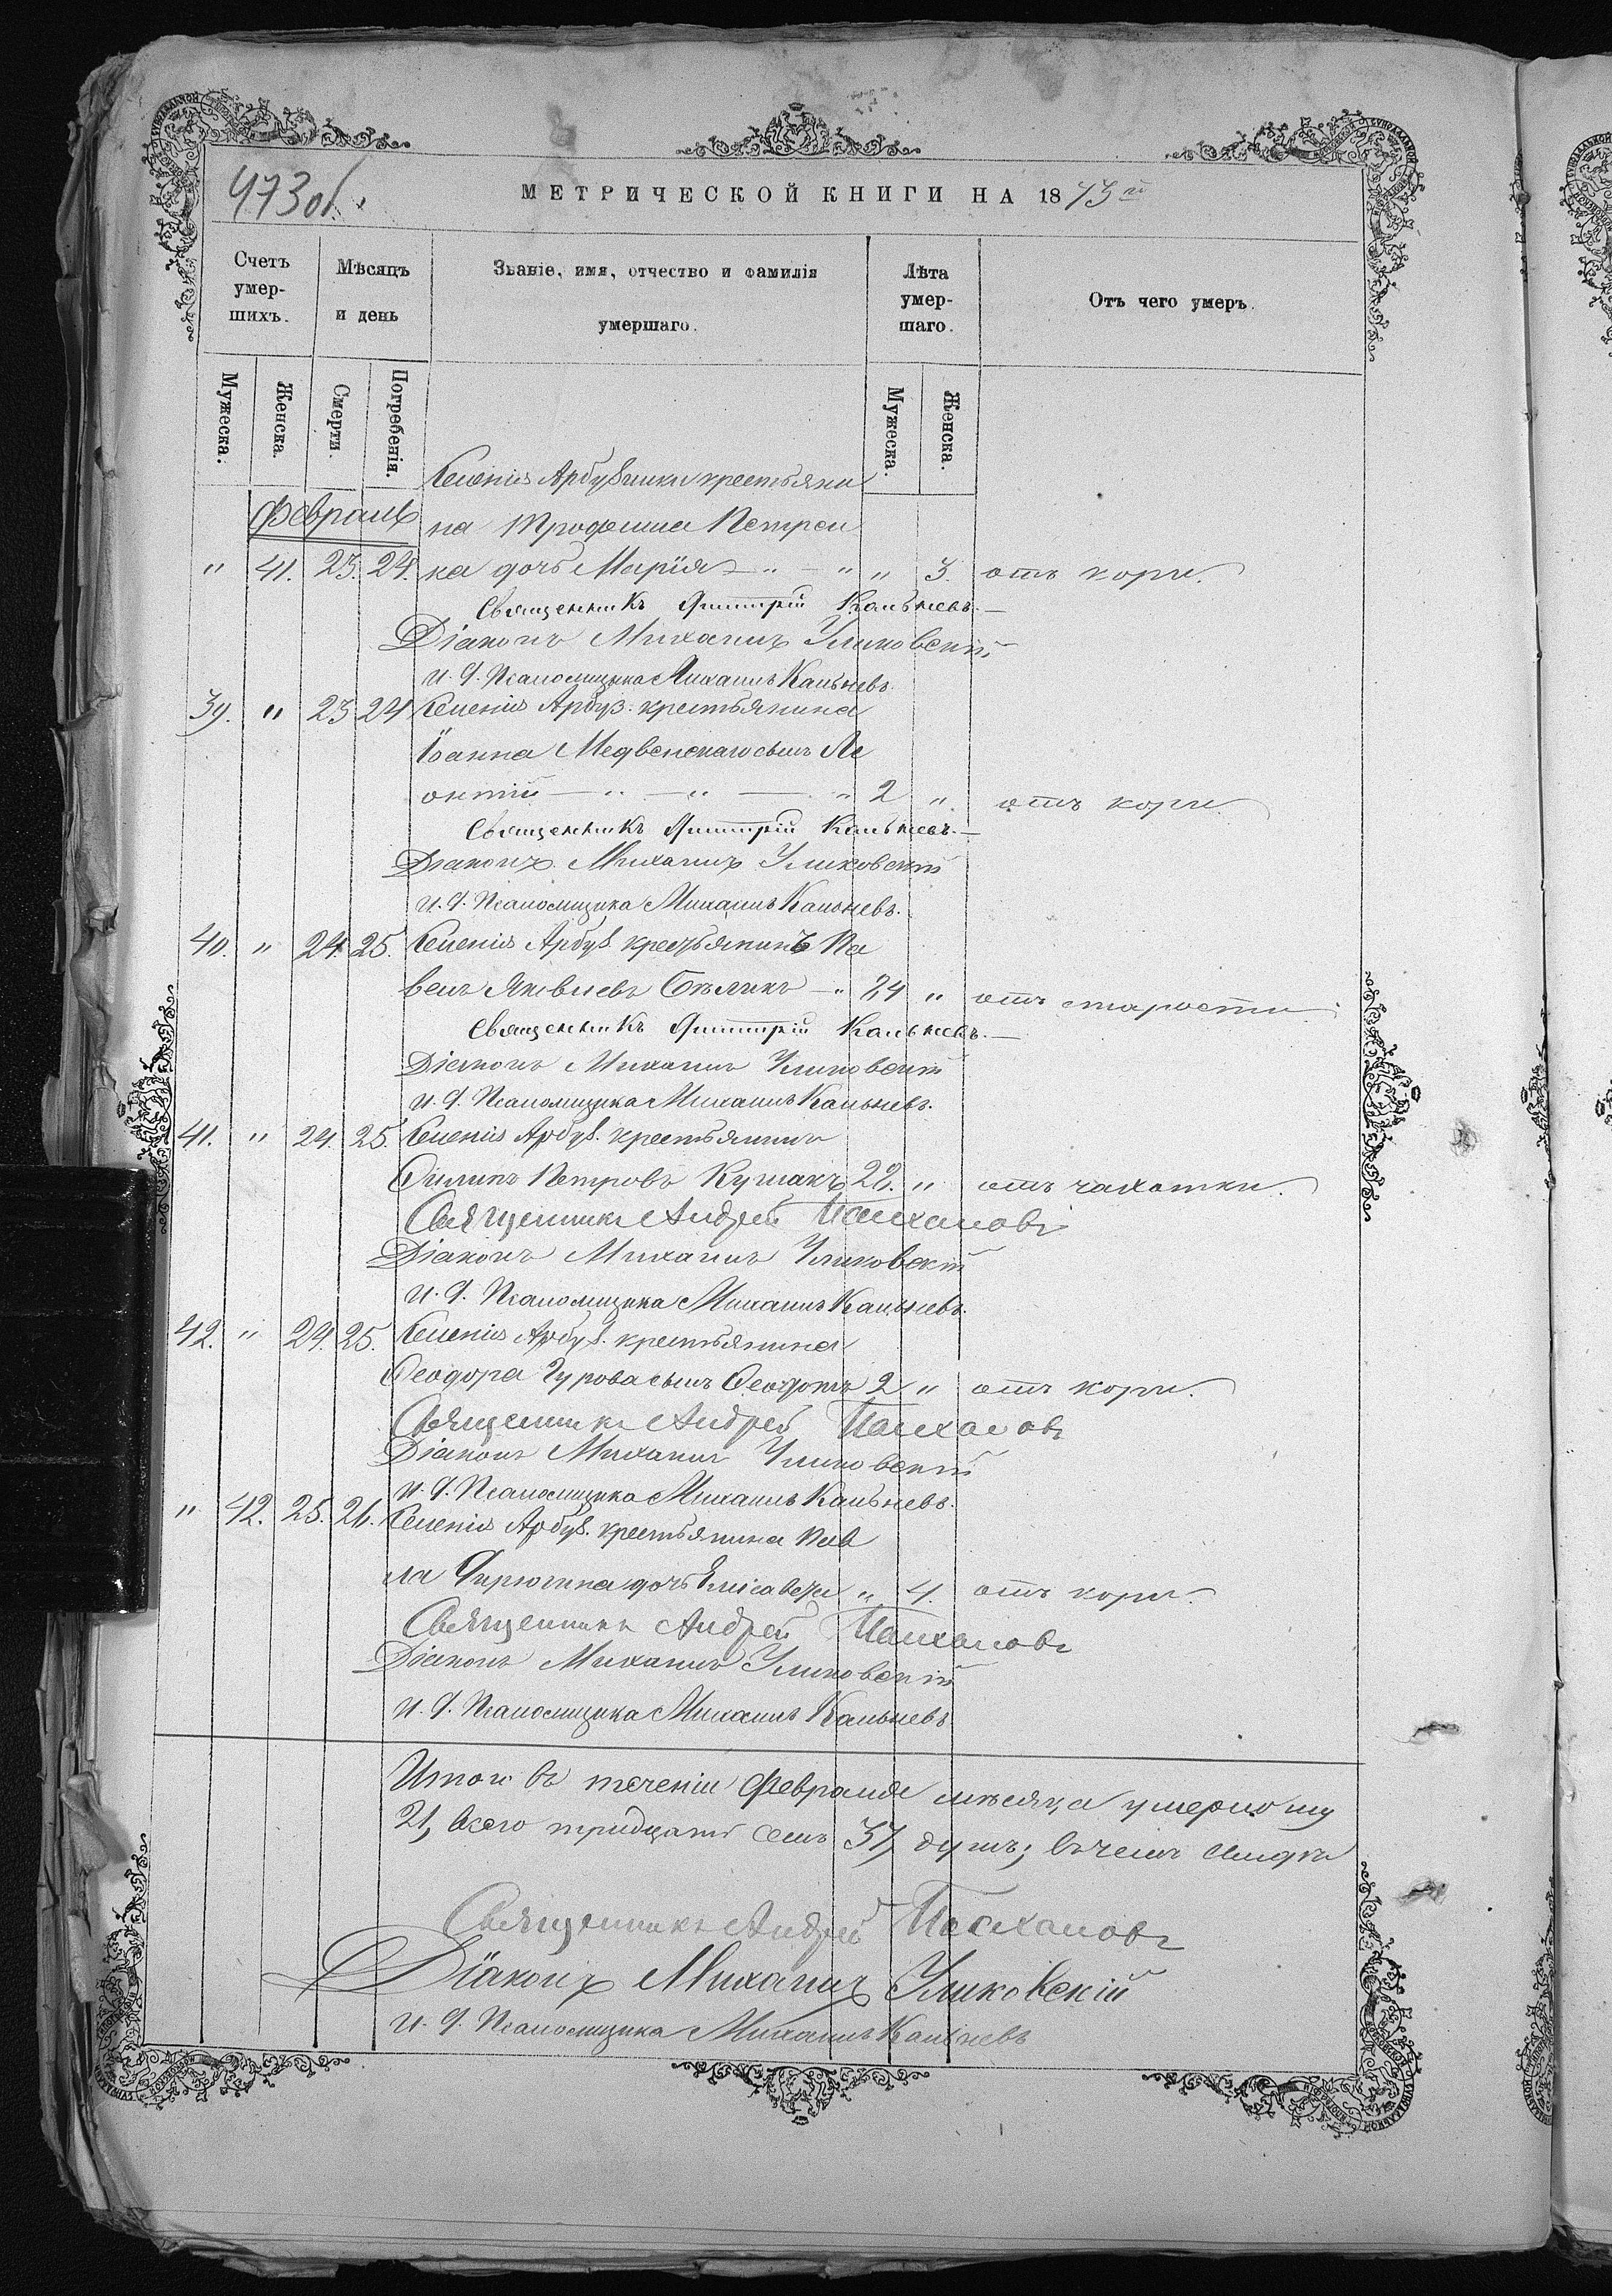 473 об.
МЕТРИЧЕСКОЙ КНИГИ НА 1873й
Счетъ умер-шихъ.
Мѣсяцъ и день
Званіе, имя, отчество и фамилія умершаго.
Лѣта умер-шаго.
Отъ чего умеръ.
Мужеска.
Женска.
Смерти.
Погребенія.
Мужеска.
Женска.
Селенія Арбузинки крестьяни
Февраль
на Трофима Петрен
" 41. 23. 24. ка дочь Марія — " — " " 3. отъ кори.
Священникъ Димитрій Кальневъ. —
Діаконъ Михаилъ Уликовскій
И. Д. Псаломщика Михаилъ Кальневъ.
39. " 23 24 Селенія Арбуз. крестьянина
Іоанна Медвенскаго сынъ Ле
онтій — " — " — " 2 " отъ кори
Священникъ Димитрій Кальневъ. —
Діаконъ Михаилъ Уликовскій
И. Д. Псаломщика Михаилъ Кальневъ.
40. " 24. 25. Селенія Арбуз. крестьянинъ Па
велъ Яковлевъ Бѣликъ — " 24 " отъ старости.
Священникъ Димитрій Кальневъ. —
Діаконъ Михаилъ Уликовскій
И. Д. Псаломщика Михаилъ Кальневъ.
41. " 24. 25. Селенія Арбуз. крестьянинъ
Филипъ Петровъ Кушакъ 28. " отъ чахотки.
Священникъ Андрей
Діаконъ Михаилъ Уликовскій
И. Д. Псаломщика Михаилъ Кальневъ.
42. " 24. 25. Селенія Арбуз. крестьянина
Феодора Гурова сынъ Феодотъ 2 " отъ кори.
Священникъ Андрей
Діаконъ Михаилъ Уликовскій
И. Д. Псаломщика Михаилъ Кальневъ.
" 42. 25. 26. Селенія Арбуз. крестьянина Пав
ла дочь Елісавета " 4. отъ кори.
Священникъ Андрей
Діаконъ Михаилъ Уликовскій
И. Д. Псаломщика Михаилъ Кальневъ
Итого въ теченіи Февраля мѣсяца умерло
21, всего тридцать семь 37, душъ; въ чемъ
Священникъ Андрей
Діаконъ Михаилъ Уликовскій
И. Д. Псаломщика Михаилъ Кальневъ